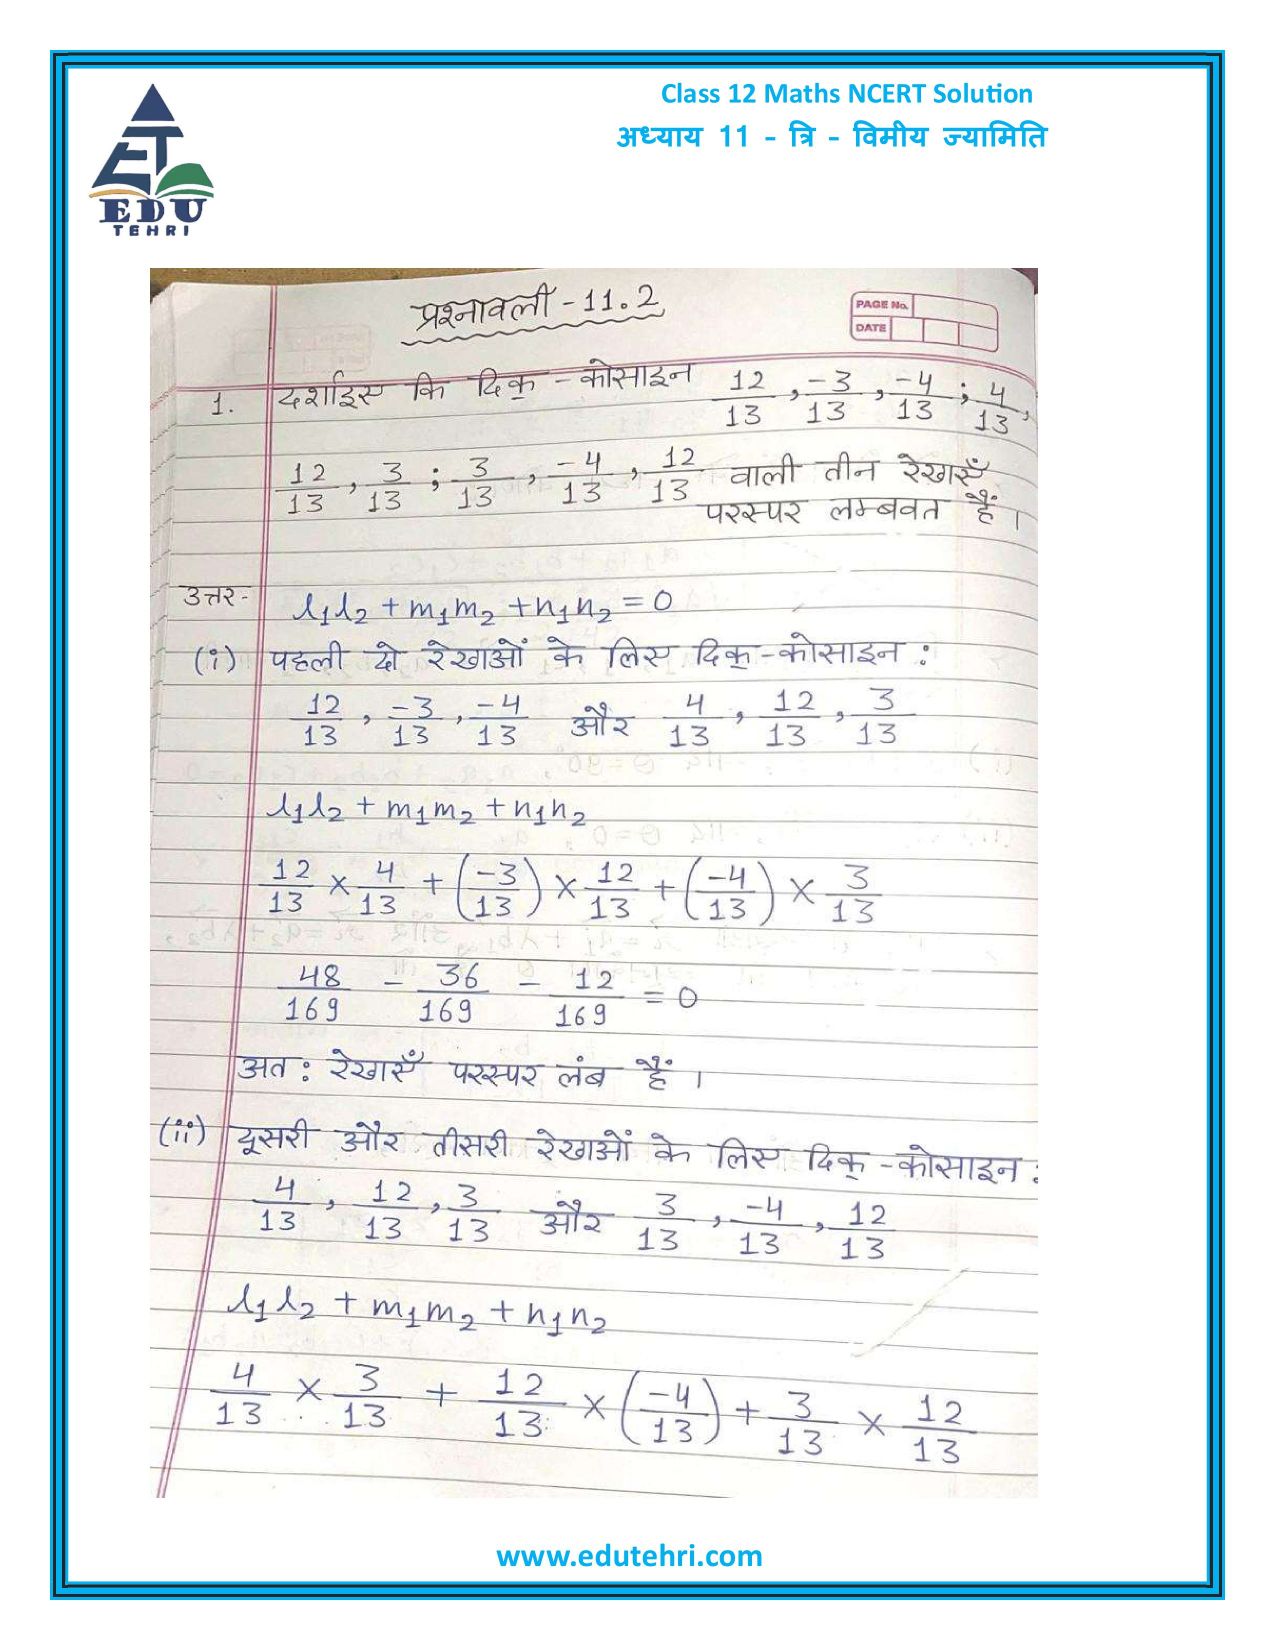 Class 12 Maths NCERT Solution
अध्याय 11 - त्रि - विमीय ज्यामिति
EDU
TEHRI
प्रश्नावली - 11.2
PAGE No.
DATE
1. दर्शाइए कि दिक् - कोसाइन 12/13, -3/13, -4/13 ; 4/13,
12/13, 3/13 ; 3/13, -4/13, 12/13 वाली तीन रेखाएँ
परस्पर लम्बवत हैं ।
उत्तर- l₁l₂ + m₁m₂ + n₁n₂ = 0
(i) पहली दो रेखाओं के लिए दिक् - कोसाइन :
12/13, -3/13, -4/13 और 4/13, 12/13, 3/13
l₁l₂ + m₁m₂ + n₁n₂
12/13 × 4/13 + (-3/13) × 12/13 + (-4/13) × 3/13
48/169 - 36/169 - 12/169 = 0
अत : रेखाएँ परस्पर लंब हैं ।
(ii) दूसरी और तीसरी रेखाओं के लिए दिक् - कोसाइन :
4/13, 12/13, 3/13 और 3/13, -4/13, 12/13
l₁l₂ + m₁m₂ + n₁n₂
4/13 × 3/13 + 12/13 × (-4/13) + 3/13 × 12/13
www.edutehri.com